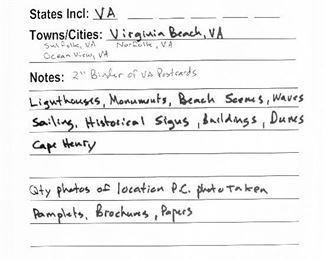 States Incl: VA
Towns/Cities: Virginia Beach, VA
Suffolk, VA Norfolk, VA
Ocean View, VA
Notes: 2" Binder of VA Postcards
Lighthouses, Monuments, Beach Scenes, Waves
Sailing, Historical Signs, Buildings, Dunes
Cape Henry
Qty photos of location P.C. photo Taken
Pamplets, Brochures, Papers